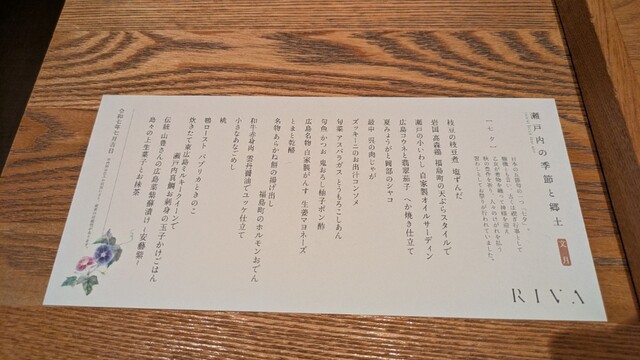 瀬戸内の季節と郷土 文月
RIVA
【七夕】
枝豆の枝豆煮 塩ずんだ
岩国高森鶏 福島町の天ぷらスタイルで
瀬戸の小いわし 自家製オイルサーディン
広島コウネと翡翠茄子 へか焼き仕立て
夏みょうがと岡部のシャコ
最中 呉の肉じゃが
ズッキーニのお出汁コンソメ
旬菜 アスパラガス とうもろこしあん
旬魚 かつお 鬼おろし柚子ポン酢
広島名物 自家製がんす 生姜マヨネーズ
とまと乾酪
名物 あらかね豚の揚げ出し
福島町のホルモンおでん
和牛赤身肉 雲丹醤油でユッケ仕立て
小さなあなごめし
桃
鶏ロースト パプリカときのこ
炊きたて東広島ミルキークイーンで
瀬戸内真鯛 お刺身の玉子かけごはん
伝統 山豊さんの広島菜紫蘇漬け ～安藝紫～
島々の上生菓子とお抹茶
令和七年七月吉日